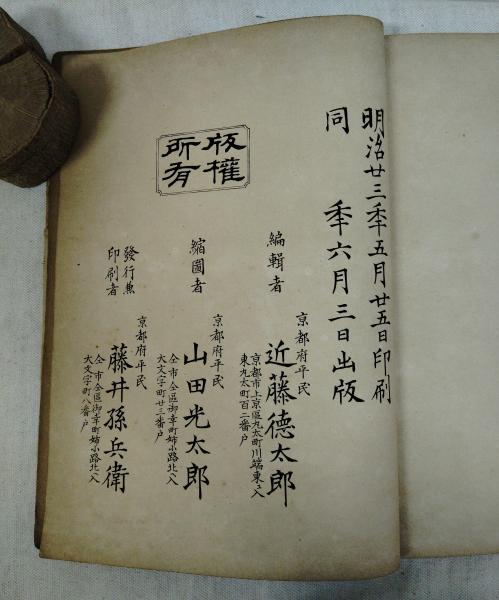 明治廿三年五月廿五日印刷
同 年六月三日出版
版權
所有
編輯者
京都府平民
近藤德太郎
京都市上京區丸太町川端東ヘ入
東丸太町百二番戸
縮圖者
京都府平民
山田光太郎
仝市仝區御幸町姉小路北ヘ入
大文字町廿三番戸
發行兼
印刷者
京都府平民
藤井孫兵衛
仝市仝區御幸町姉小路北ヘ入
大文字町八番戸